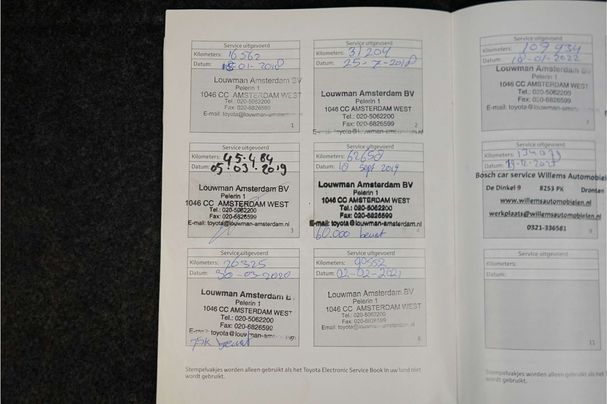 Service uitgevoerd
Kilometers: 16562
Datum: 18-01-2018
Louwman Amsterdam BV
Pelerin 1
1046 CC AMSTERDAM WEST
Tel.: 020-5062200
Fax: 020-6826599
E-mail: toyota@louwman-amsterdam
1
Service uitgevoerd
Kilometers: 31204
Datum: 25-7-2018
Louwman Amsterdam BV
Pelerin 1
1046 CC AMSTERDAM WEST
Tel.: 020-5062200
Fax: 020-6826599
E-mail: toyota@louwman-amsterdam.nl
2
Service uitgevoerd
Kilometers: 45.484
Datum: 05.03.2019
Louwman Amsterdam BV
Pelerin 1
1046 CC AMSTERDAM WEST
Tel.: 020-5062200
Fax: 020-6826599
E-mail: toyota@louwman-amsterdam.nl
3
Service uitgevoerd
Kilometers: 62658
Datum: 10 sept 2019
Louwman Amsterdam BV
Pelerin 1
1046 CC AMSTERDAM WEST
Tel.: 020-5062200
Fax: 020-6826599
E-mail: toyota@louwman-amsterdam.nl
60.000 beurt
Service uitgevoerd
Kilometers: 76325
Datum: 30-03-2020
Louwman Amsterdam B.
Pelerin 1
1046 CC AMSTERDAM WEST
Tel.: 020-5062200
Fax: 020-6826599
toyota@louwman-am
75k beurt
Service uitgevoerd
Kilometers:
Datum: 02-02-2021
Louwman Amsterdam BV
Pelerin 1
1046 CC AMSTERDAM WEST
Tel.: 020-5062200
Fax: 020-6826599
E-mail: toyota@louwman-amsterdam.nl
6
Stempelvakjes worden alleen gebruikt als het Toyota Electronic Service Book in uw land niet
wordt gebruikt.
Service uitgevoerd
Kilometers: 109934
Datum: -01-2022
Louwman Amsterdam BV
Pelerin 1
1046 CC AMSTERDAM WEST
Tel.: 020-5062200
Fax: 020-6826599
E-mail: toyota@louwman-amsterdam
Service uitgevoerd
Kilometers:
Datum:
Bosch car service Willems Automobiel
De Dinkel 9 8253 PX Dronten
www.willemsautomobielen.nl
werkplaats@willemsautomobielen.nl
0321-336581
Service uitgevoerd
Kilometers:
Datum:
Stempelvakjes worden alleen gebruikt als
wordt gebruikt.